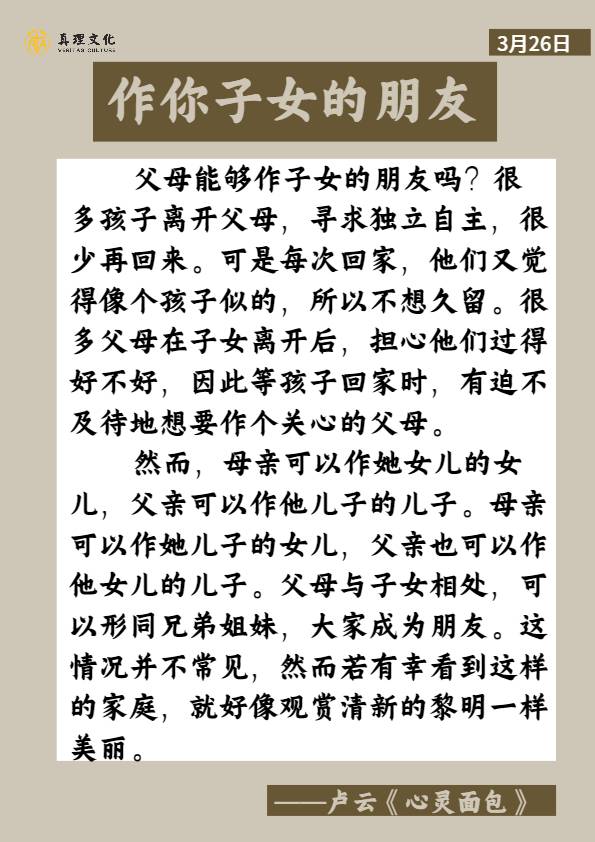 真理文化
VERITAS CULTURE
3月26日
作你子女的朋友
父母能够作子女的朋友吗？很
多孩子离开父母，寻求独立自主，很
少再回来。可是每次回家，他们又觉
得像个孩子似的，所以不想久留。很
多父母在子女离开后，担心他们过得
好不好，因此等孩子回家时，有迫不
及待地想要作个关心的父母。
然而，母亲可以作她女儿的女
儿，父亲可以作他儿子的儿子。母亲
可以作她儿子的女儿，父亲也可以作
他女儿的儿子。父母与子女相处，可
以形同兄弟姐妹，大家成为朋友。这
情况并不常见，然而若有幸看到这样
的家庭，就好像观赏清新的黎明一样
美丽。
——卢云《心灵面包》